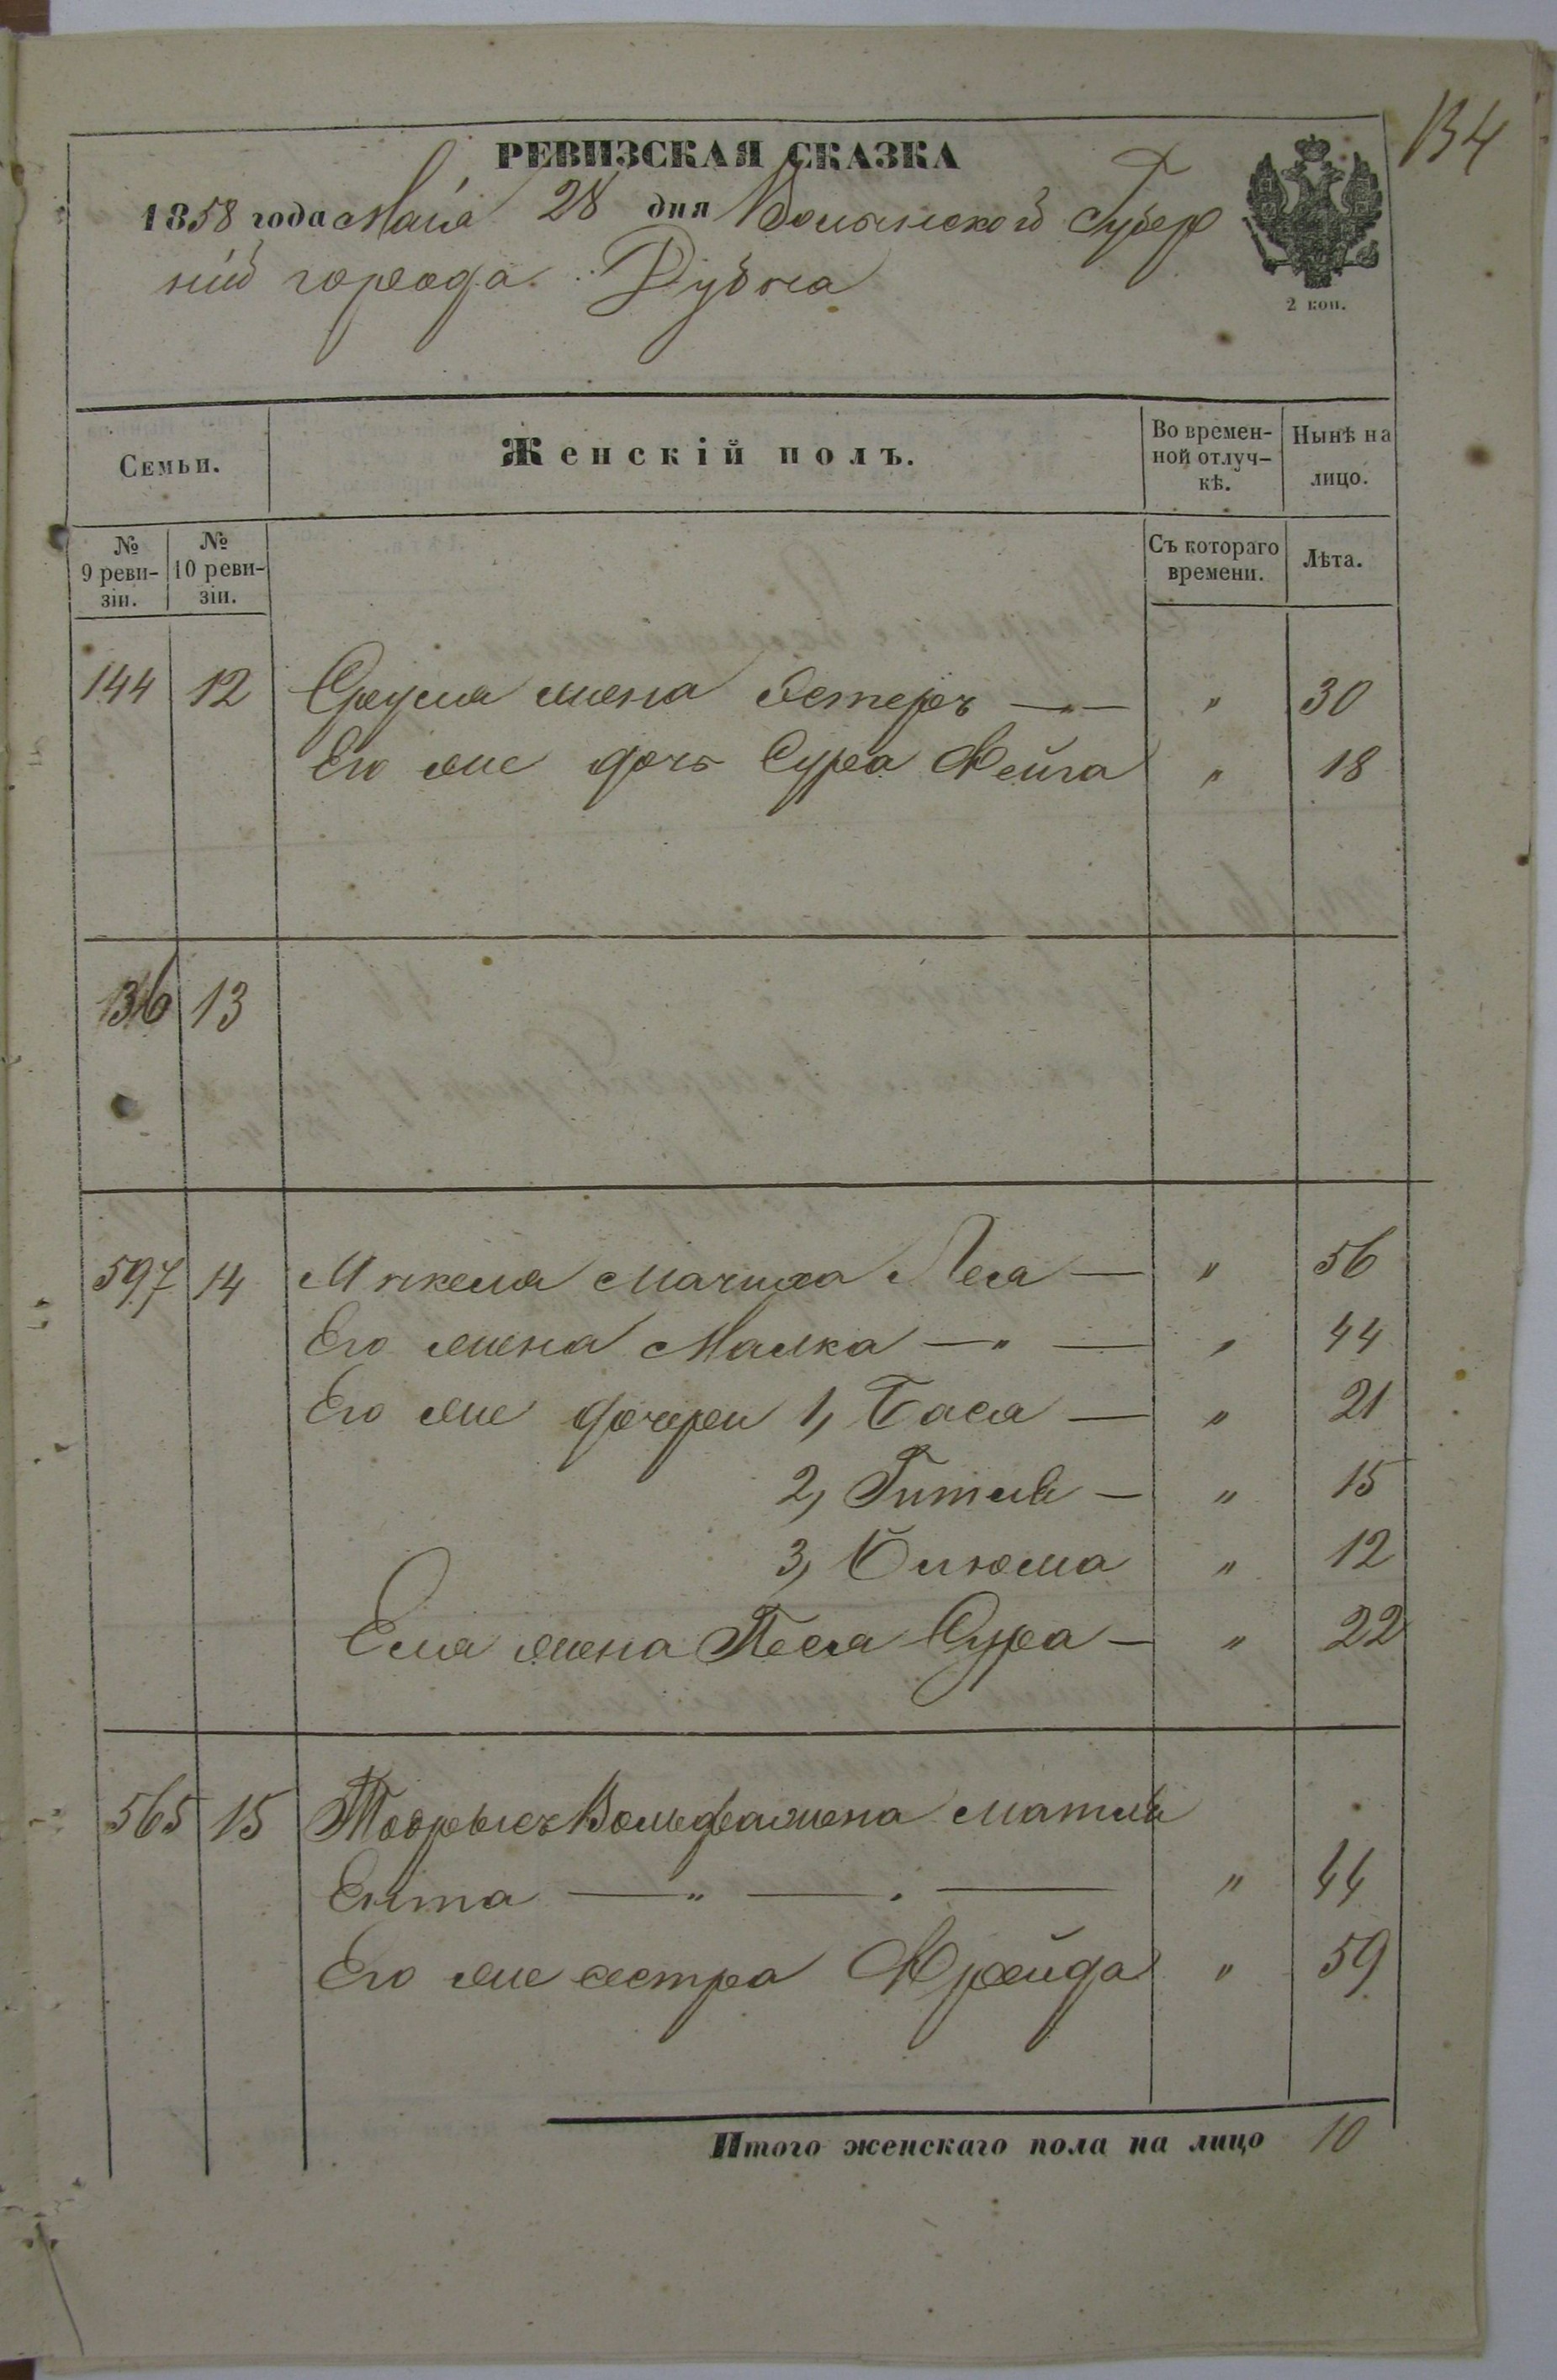 134
РЕВИЗСКАЯ СКАЗКА
1858 года Маія 28 дня Волынской Губер
ніи города Дубна
2 коп.
Семьи.
Женскій полъ.
Во времен-
ной отлуч-
кѣ.
Нынѣ на
лицо.
№
9 реви-
зіи.
№
10 реви-
зіи.
Съ котораго
времени.
Лѣта.
144 12 Сруля жена Эстеръ — " — " 30
Его же дочь Сура Фейга " 18
136 13
597 14 Мачиха Леа — " 56
Его жена Малка — " — " 44
Его же дочери 1, Бася — " 21
2, Гитля — " 15
3, Блюма " 12
Еля жена Песя Сура — " 22
565 15 Вольфа жена
Ента — " — . — " 44
Его же сестра Фрейда " 59
Итого женскаго пола на лицо 10